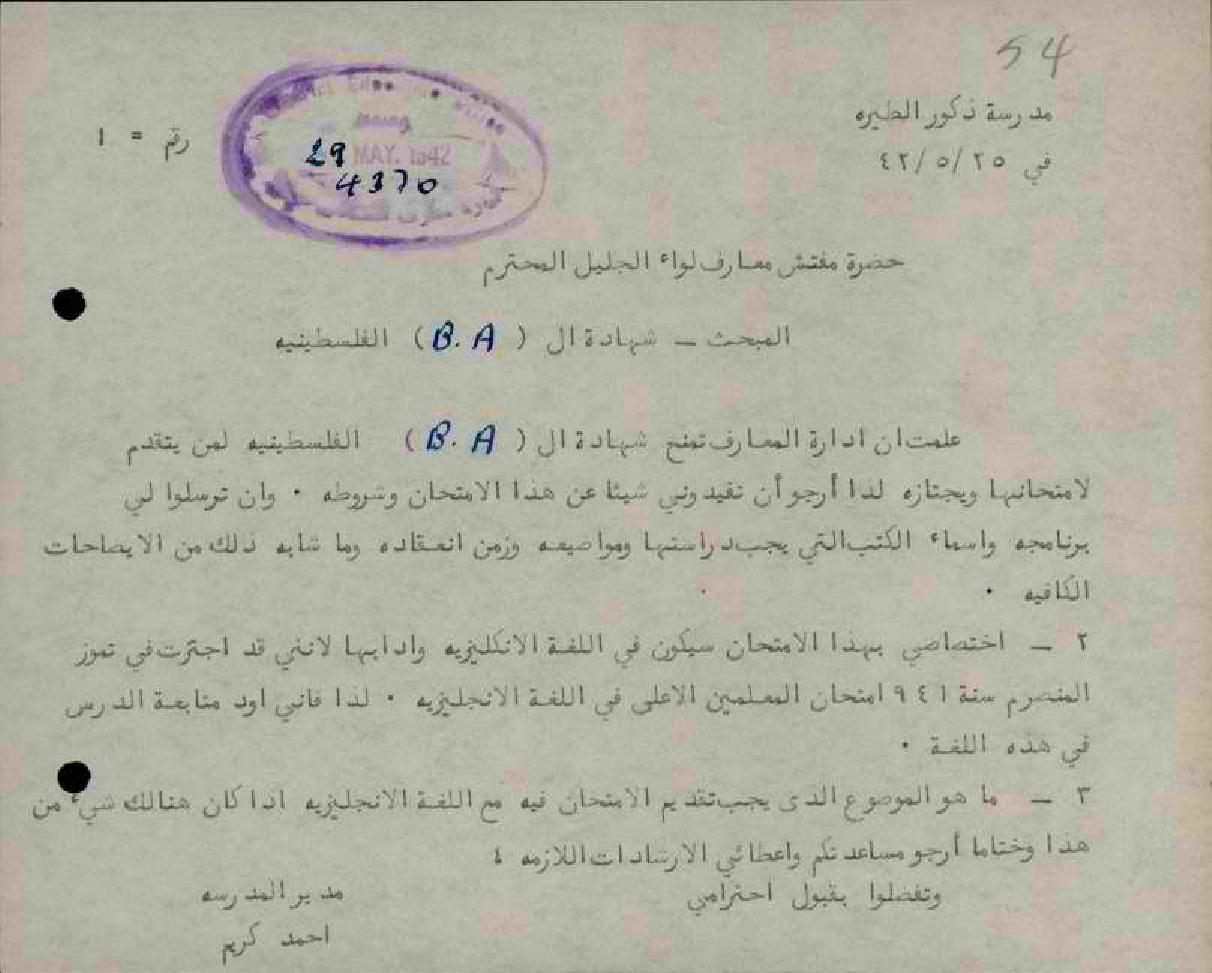 54
مدرسة ذكور الطيره
في ٤٢/٥/٢٥
رقم = ١
29 MAY. 1942
4370
حضرة مفتش معارف لواء الجليل المحترم
المبحث — شهادة ال ( B. A ) الفلسطينيه
علمت ان ادارة المعارف تمنح شهادة ال ( B. A ) الفلسطينيه لمن يتقدم
لامتحانها ويجتازه لذا أرجو أن تفيدوني شيئا عن هذا الامتحان وشروطه ٠ وان ترسلوا لي
برنامجه واسماء الكتب التي يجب دراستها ومواضيعه وزمن انعقاده وما شابه ذلك من الايضاحات
الكافيه ٠
٢ — اختصاصي بهذا الامتحان سيكون في اللغة الانكليزيه وادابها لانني قد اجتزت في تموز
المنصرم سنة ٩٤١ امتحان المعلمين الاعلى في اللغة الانجليزيه ٠ لذا فاني اود متابعة الدرس
في هذه اللغة ٠
٣ — ما هو الموضوع الذى يجب تقديم الامتحان فيه مع اللغة الانجليزيه اذا كان هنالك شيء من
هذا وختاما أرجو مساعدتكم واعطائي الارشادات اللازمه ؛
وتفضلوا بقبول احترامي
مدير المدرسه
احمد كريم